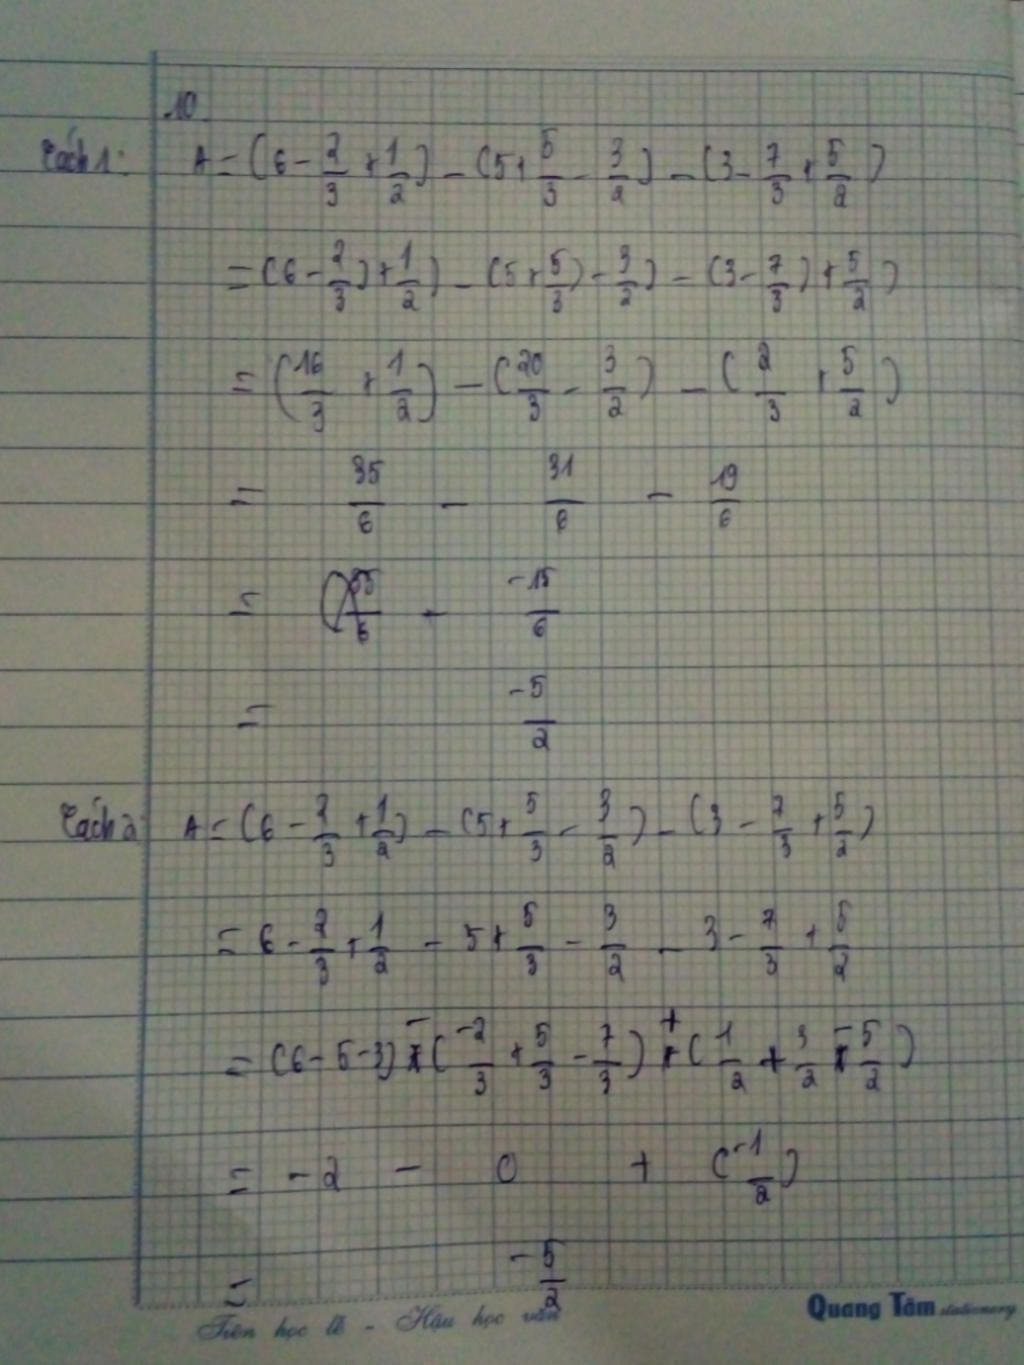 10
Cách 1: A = (6 - 2/3 + 1/2) - (5 + 5/3 - 3/2) - (3 - 7/3 + 5/2)
= (6 - 2/3) + 1/2) - (5 + 5/3) - 3/2) - (3 - 7/3) + 5/2)
= (16/3 + 1/2) - (20/3 - 3/2) - (2/3 + 5/2)
= 35/6 - 31/6 - 19/6
= -15/6
= -5/2
Cách 2: A = (6 - 2/3 + 1/2) - (5 + 5/3 - 3/2) - (3 - 7/3 + 5/2)
= 6 - 2/3 + 1/2 - 5 + 5/3 - 3/2 - 3 - 7/3 + 5/2
= (6 - 5 - 3) - (-2/3 + 5/3 - 7/3) + (1/2 + 3/2 - 5/2)
= -2 - 0 + (-1/2)
= -5/2
Tiên học lễ - Hậu học văn
Quang Tâm stationery